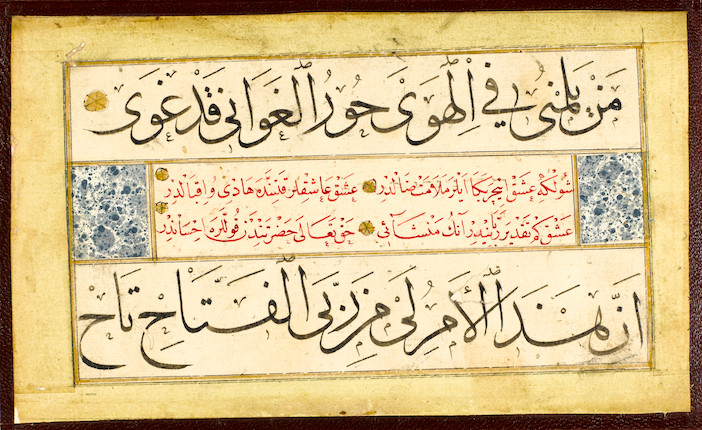 مَنْ يَلُمْنِى فِي الْهَوَىٰ حُورُ الْغَوَانِى قَدْ غَوَى
شولكه عشق ايچر بكا ايلر ملامت ضالدر عشق عاشقلر قتنده هادى و اقبالدر
عشق كم تقدير ربانيدر انك منشائى حق تعالى حضرتندن قوللره احساندر
اِنَّ هٰذَا الْأَمْرَ لِى مِنْ رَبِّىَ الْفَتَّاحِ تَاحْ